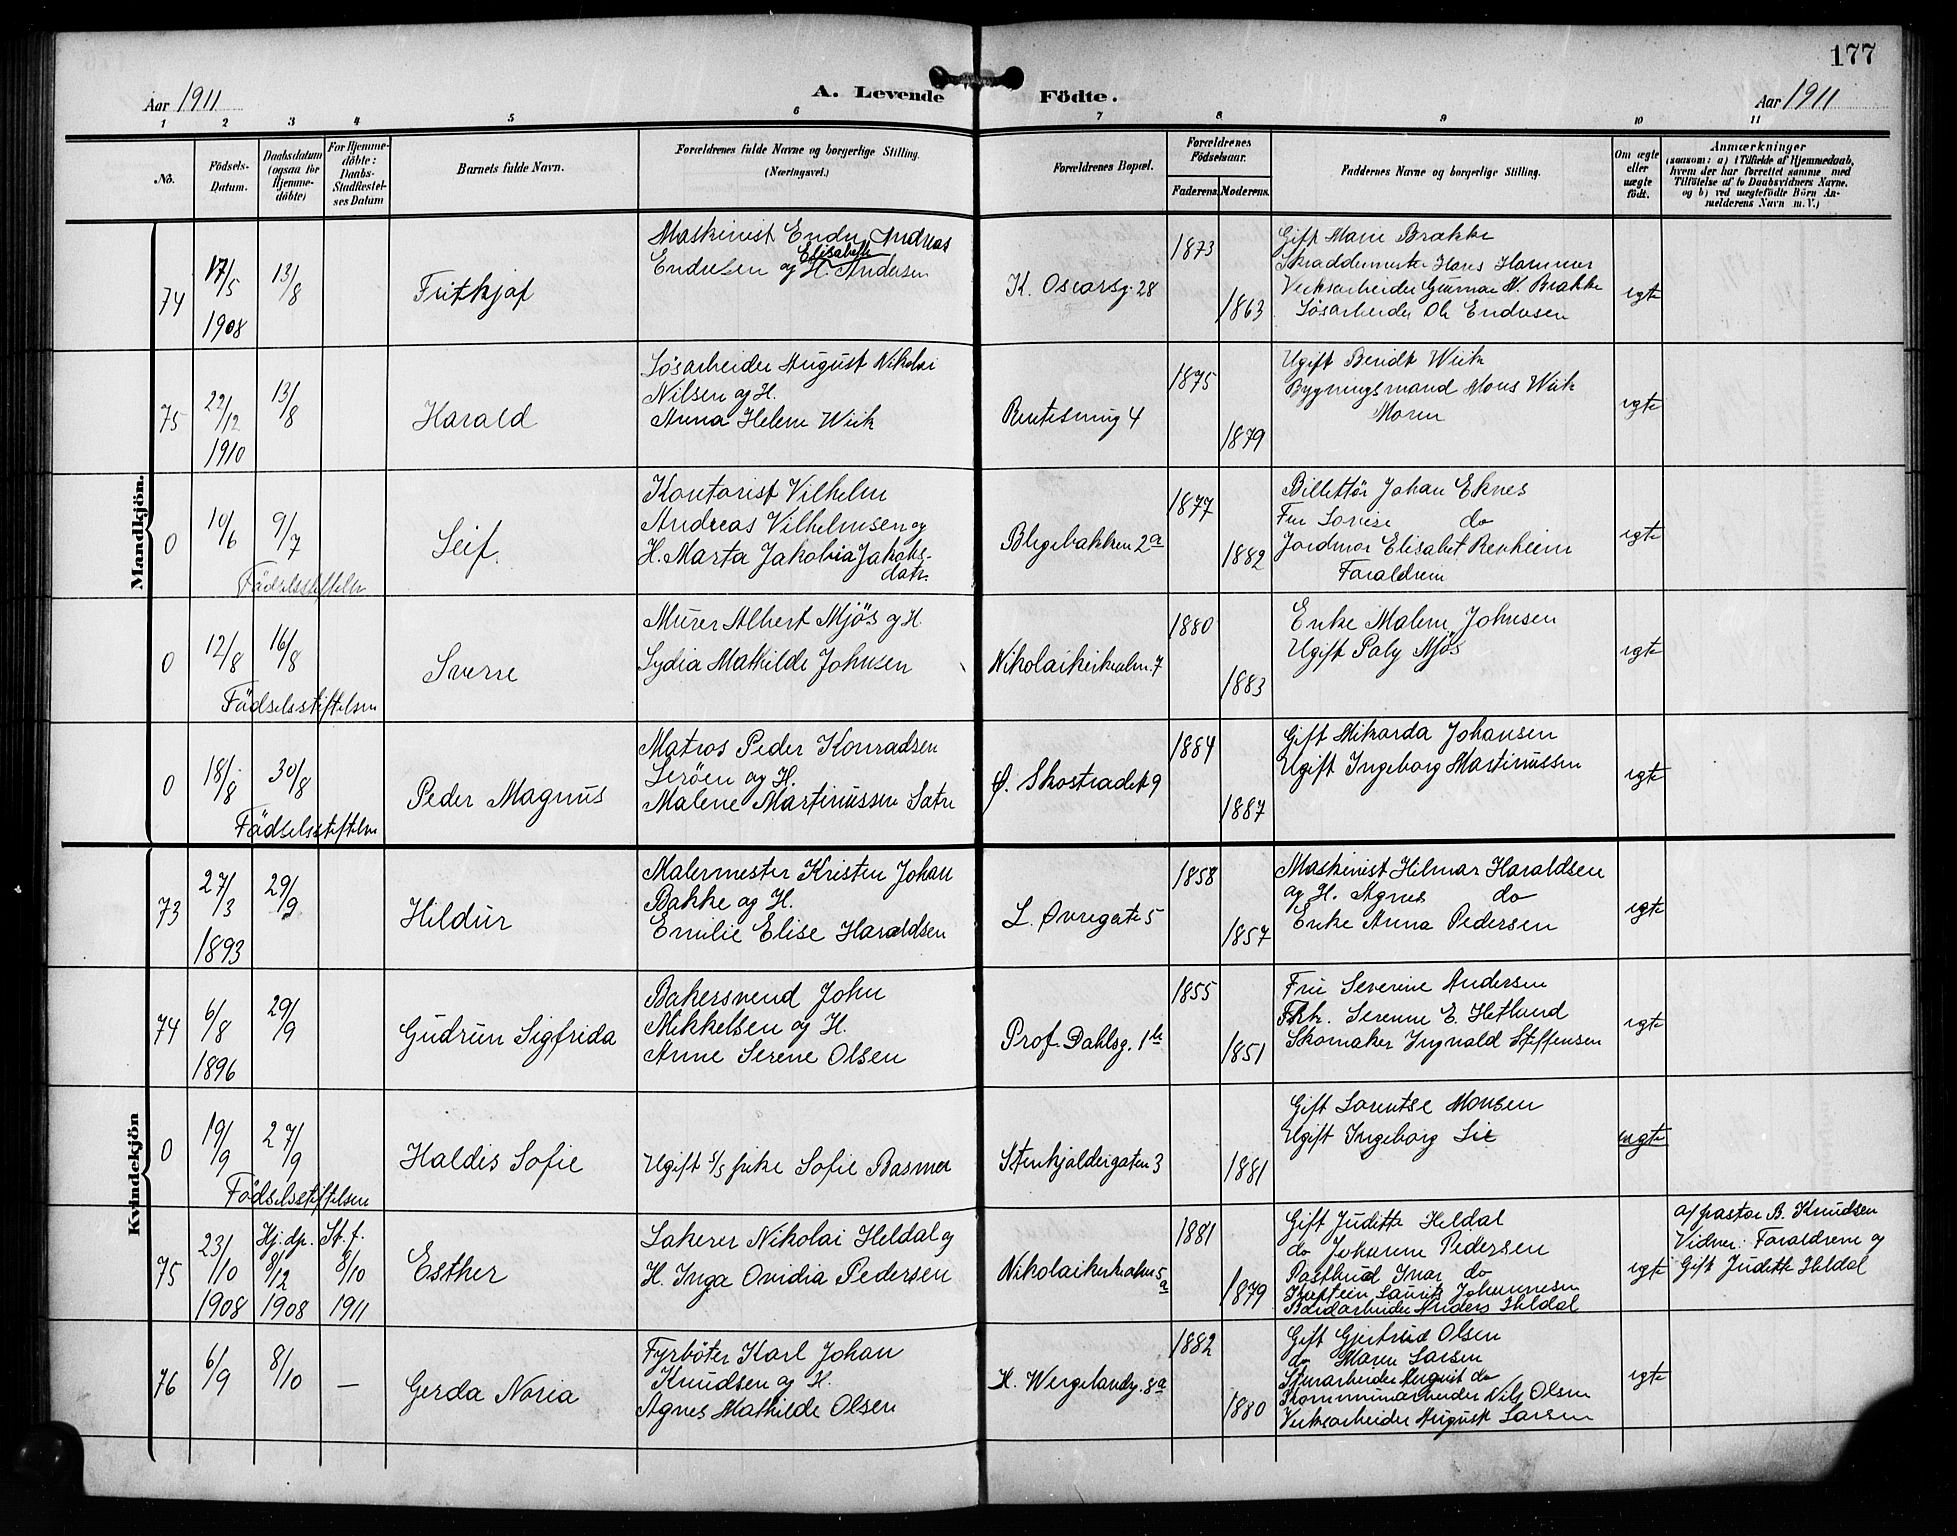 177
Aar 1911
A. Levende Födte.
Aar 1911
1 2 3 4 5 6 7 8 9 10 11
No.
Födsels-
Datum.
Daabsdatum
(ogsaa for
Hjemme-
döbte)
For Hjemme-
döbte:
Daabs-
Stadfæstel-
ses Datum
Barnets fulde Navn.
Forældrenes fulde Navne og borgerlige Stilling.
(Næringsvei.)
Forældrenes Bopæl.
Forældrenes
Födselsaar.
Faderens. Moderens.
Faddernes Navne og borgerlige Stilling.
Om ægte
eller
uægte
födt.
Anmærkninger
(saasom: a) i Tilfælde af Hjemmedaab,
hvem der har forrettet samme med
Tilföielse af to Daabsvidners Navne.
og b) ved uægtefödte Börn An-
melderens Navn m.V.)
Mandkjön.
74
17/5
1908
13/8
Fritkjof
Maskinist Endre Andreas
Endresen og H. Elisabeth Andersen
K. Oscarsg. 28
1873
1863
Gift Marie Brække
Skræddermester Hans Hammer
Verksarbeider Gunnar N. Brække
Løsarbeider Ole Endresen
egte
75
22/12
1910
13/8
Harald
Løsarbeider August Nikolai
Nilsen og H.
Anna Helene Wiik
Reutesmug 4
1875
1879
Ugift Beridt Wiik
Bygningsmand Mons Wiik
Moren
egte
0
10/6
9/7
Födselsstiftelsen
Leif.
Kontorist Vilhelm
Andreas Vilhelmsen og
H. Marta Jakobia Jakobs-
datr.
Blegebakken 2a
1877
1882
Billettør Johan Eknes
Fru Lovise do
Jordmor Elisabet Revheim
Forældrene
egte
0
12/8
16/8
Födselsstiftelsen
Sverre
Murer Albert Mjös og H.
Lydia Mathilde Johnsen
Nikolaikirkealm. 7
1880
1883
Enke Malene Johnsen
Ugift Paly Mjös
egte
0
18/8
30/8
Födselsstiftelsen
Peder Magnus
Matros Peder Konradsen
Lerøen og H.
Malene Martinussen Sætre
Ø. Skostrædet 9
1884
1887
Gift Mikarda Johansen
Ugift Ingeborg Martinussen
egte
Kvindekjön
73
27/3
1893
29/9
Hildur
Malermester Kristen Johan
Bakke og H.
Emilie Elise Haraldsen
L. Øvregate 5
1858
1857
Maskinist Hilmar Haraldsen
og H. Agnes do
Enke Anna Pedersen
egte
74
6/8
1896
29/9
Gudrun Sigfrida
Bakersvend John
Mikkelsen og H.
Anne Serene Olsen
Prof. Dahlsg. 1b
1855
1851
Fru Severine Andersen
Frk. Serenne E. Hetlund
Skomaker Ingvald Steffensen
egte
0
19/9
27/9
Födselsstiftelsen
Haldis Sofie
Ugift Sofie Basmer
Stenkjeldergaten 3
1881
Gift Lorentse Monsen
Ugift Ingeborg Lie
uegte
75
23/10
1908
Hj. dp.
8/12
1908
St. f.
8/10
1911
Esther
Lakerer Nikolai Heldal og
H. Inga Ovidia Pedersen
Nikolaikirkealm 5a
1881
1879
Gift Juditte Heldal
do Johanne Pedersen
Postbud Ivar do
Kaptein Laurits Johannesen
Anders Heldal
egte
af pastor B. Knudsen
Vidner: Forældrene og
Gift Juditte Heldal
76
6/9
8/10
—
Gerda Noria
Fyrböter Karl Johan
Knudsen og H.
Agnes Mathilde Olsen
H. Wergelandg. 8a
1882
1880
Gift Gjertrud Olsen
do Maren Larsen
Stenarbeider August do
Kommunearbeider Nils Olsen
Verksarbeider August Larsen
egte